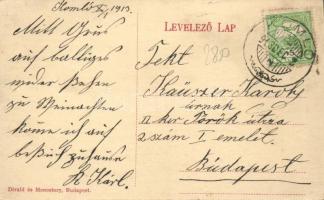 Komló 1913.
Mitt Grus
auf baldiges
wieder sehen
zu Weinachten
komme ich auf
besuch zuhause
K. Karl.
LEVELEZŐ LAP
280
Tekt
Kauszer Károly
úrnak
II ker Török utcza
2 szám I emelet.
Budapest
Divald és Monostory, Budapest.